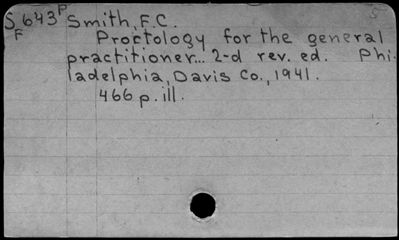 S 643 P Smith, F.C. 5
F
Proctology for the general
practitioner... 2-d rev. ed. Phi-
ladelphia, Davis Co., 1941.
466 p. ill.